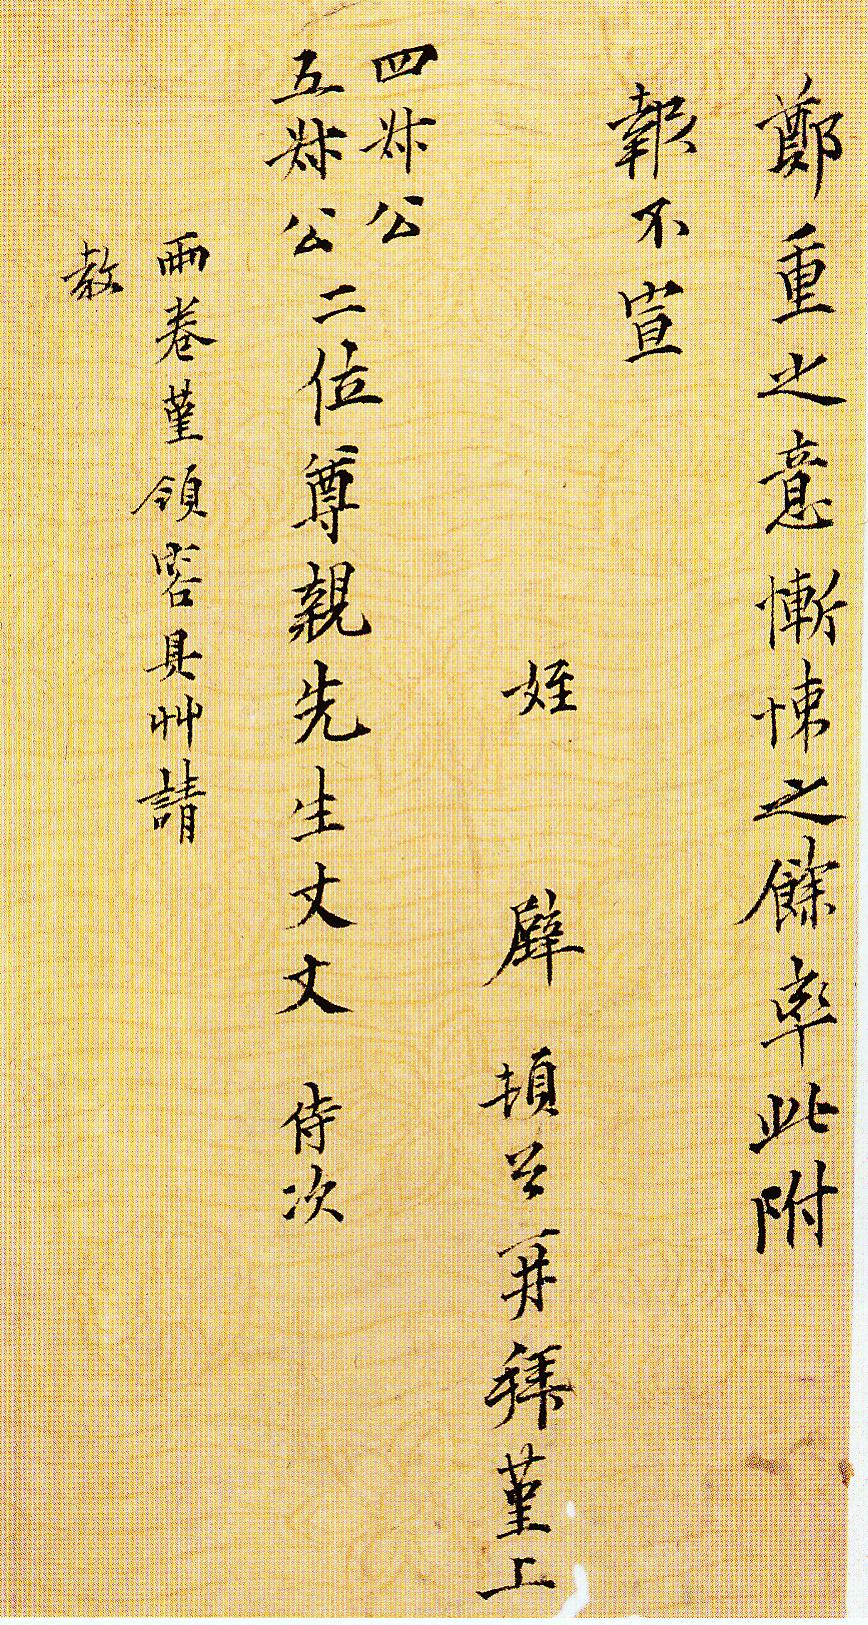 鄭重之意慚悚之餘率此附
報不宣
姪 璧 頓首再拜堇上
四叔公
五叔公二位尊親先生丈丈 侍次
兩卷堇領容具艸請
教